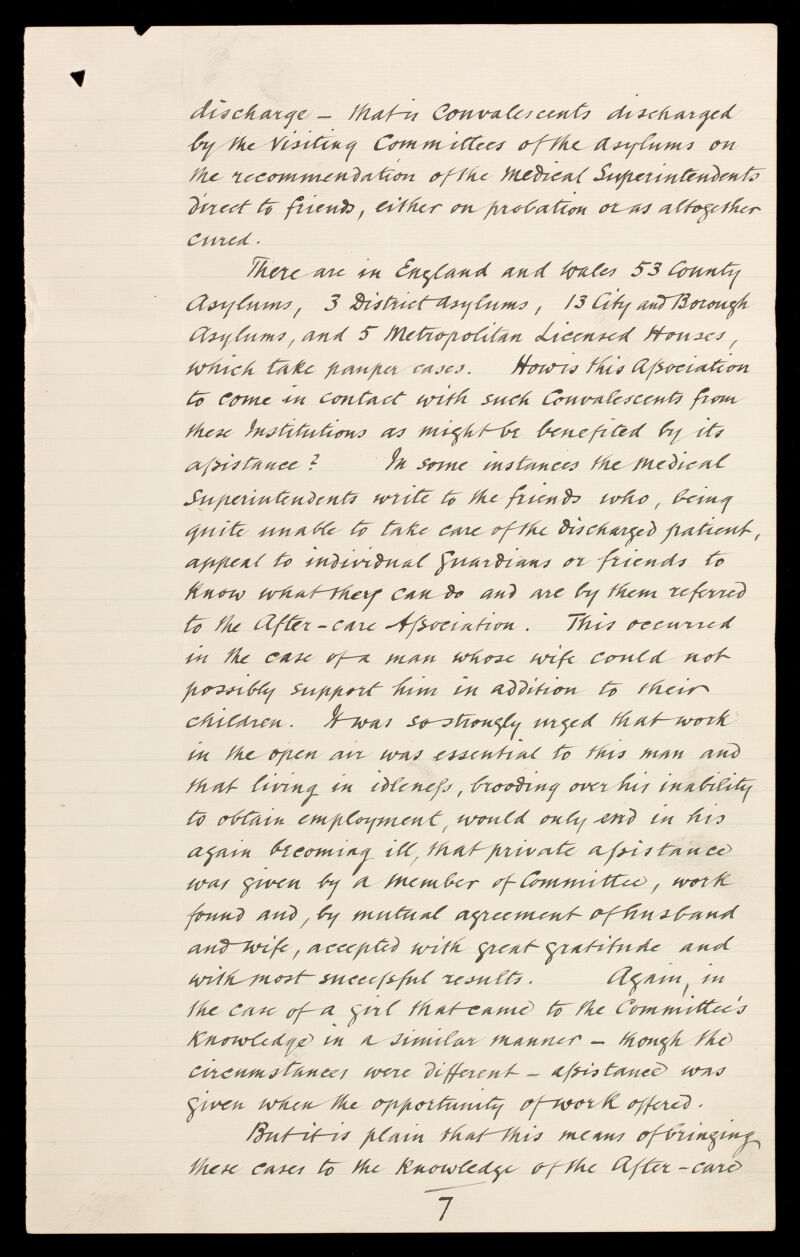 discharge – that is Convalescents discharged
by the Visiting Committees of the Asylums on
the recommendation of the Medical Superintendents
direct to friends, either on probation or as altogether
cured.
There are in England and Wales 53 County
Asylums, 3 District Asylums, 13 City and Borough
Asylums, and 5 Metropolitan Licensed Houses,
which take pauper cases. How is this Aſsociation
to come in contact with such Convalescents from
these Institutions as might be benefited by its
aſsistance? In some instances the Medical
Superintendents write to the friends who, being
quite unable to take care of the discharged patient,
appeal to individual Guardians or friends to
know what they can do and are by them referred
to the After-care Aſsociation. This occurred
in the case of a man whose wife could not
poſsibly support him in addition to their
children. It was so strongly urged that work
in the open air was essential to this man and
that living in idleneſs, brooding over his inability
to obtain employment, would only end in his
again becoming ill, that private aſsistance
was given by a Member of Committee, work
found and, by mutual agreement of husband
and wife, accepted with great gratitude and
with most succeſsful results. Again, in
the case of a girl that came to the Committee's
knowledge in a similar manner – though the
circumstances were different – aſsistance was
given when the opportunity of work offered.
But it is plain that this means of bringing
these cases to the knowledge of the After-care
7